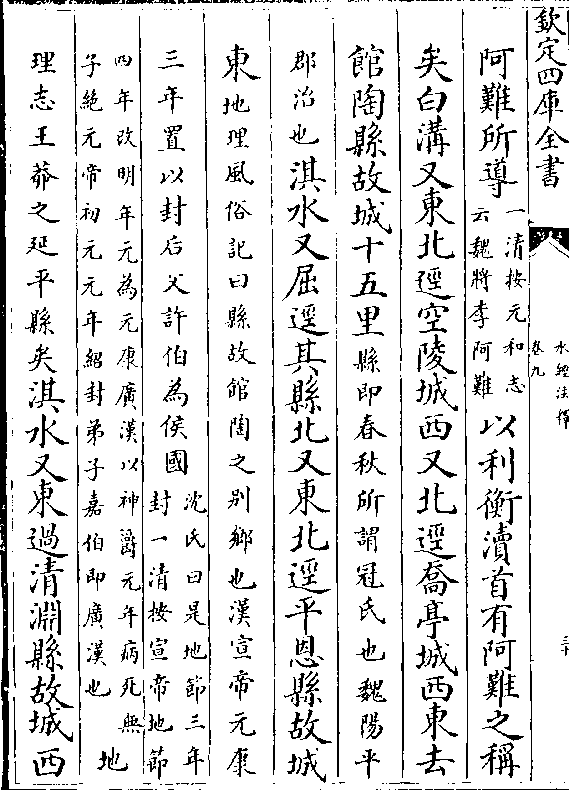 欽定四庫全書
水經注釋
卷九
三十
阿難所導一清按元和志云魏將李阿難以利衡瀆首有阿難之稱
矣白溝又東北逕空陵城西又北逕喬亭城西東去
館陶縣故城十五里縣即春秋所謂冠氏也魏陽平
郡治也淇水又屈逕其縣北又東北逕平恩縣故城
東地理風俗記曰縣故館陶之别鄉也漢宣帝元康
三年置以封后父許伯為侯國沈氏曰是地節三年封一清按宣帝地節
四年改明年元為元康廣漢以神爵元年病死無子絶元帝初元元年紹封弟子嘉伯即廣漢也地
理志王莽之延平縣矣淇水又東過清淵縣故城西